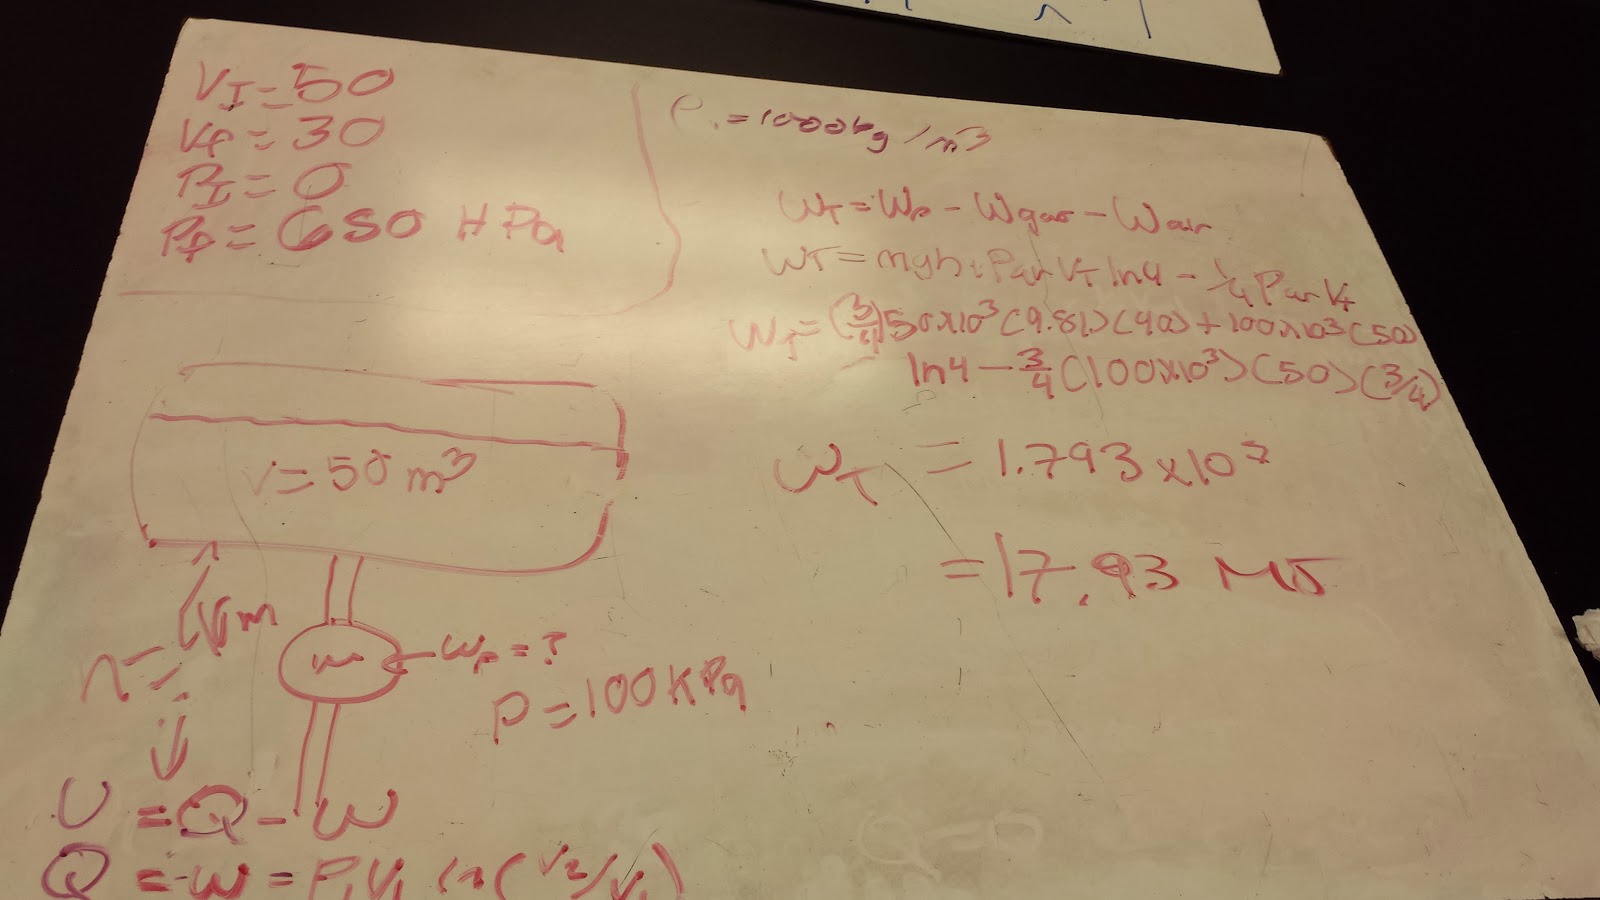 V_I = 50
V_f = 30
P_I = 0
P_f = 650 HPa
= 1000 kg/m³
W_T = W_p - W_gas - W_air
W_T = mgh + Par V_T ln4 - 1/4 Par V_T
W_T = (3/4) 50x10³ (9.81) (40) + 100x10³ (50)
ln4 - 3/4 (100x10³) (50) (3/4)
V = 50 m³
W_T = 1.793 x 10⁷
= 17.93 MJ
m
W_p = ?
P = 100 KPa
U = Q - W
Q = -W = P₁V₁ ln(V₂/V₁)